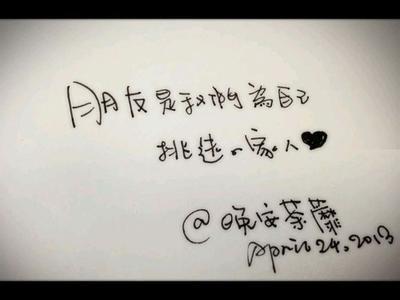 朋友是我們為自己
挑選的家人♥
@晚安荼蘼
April 24, 2013